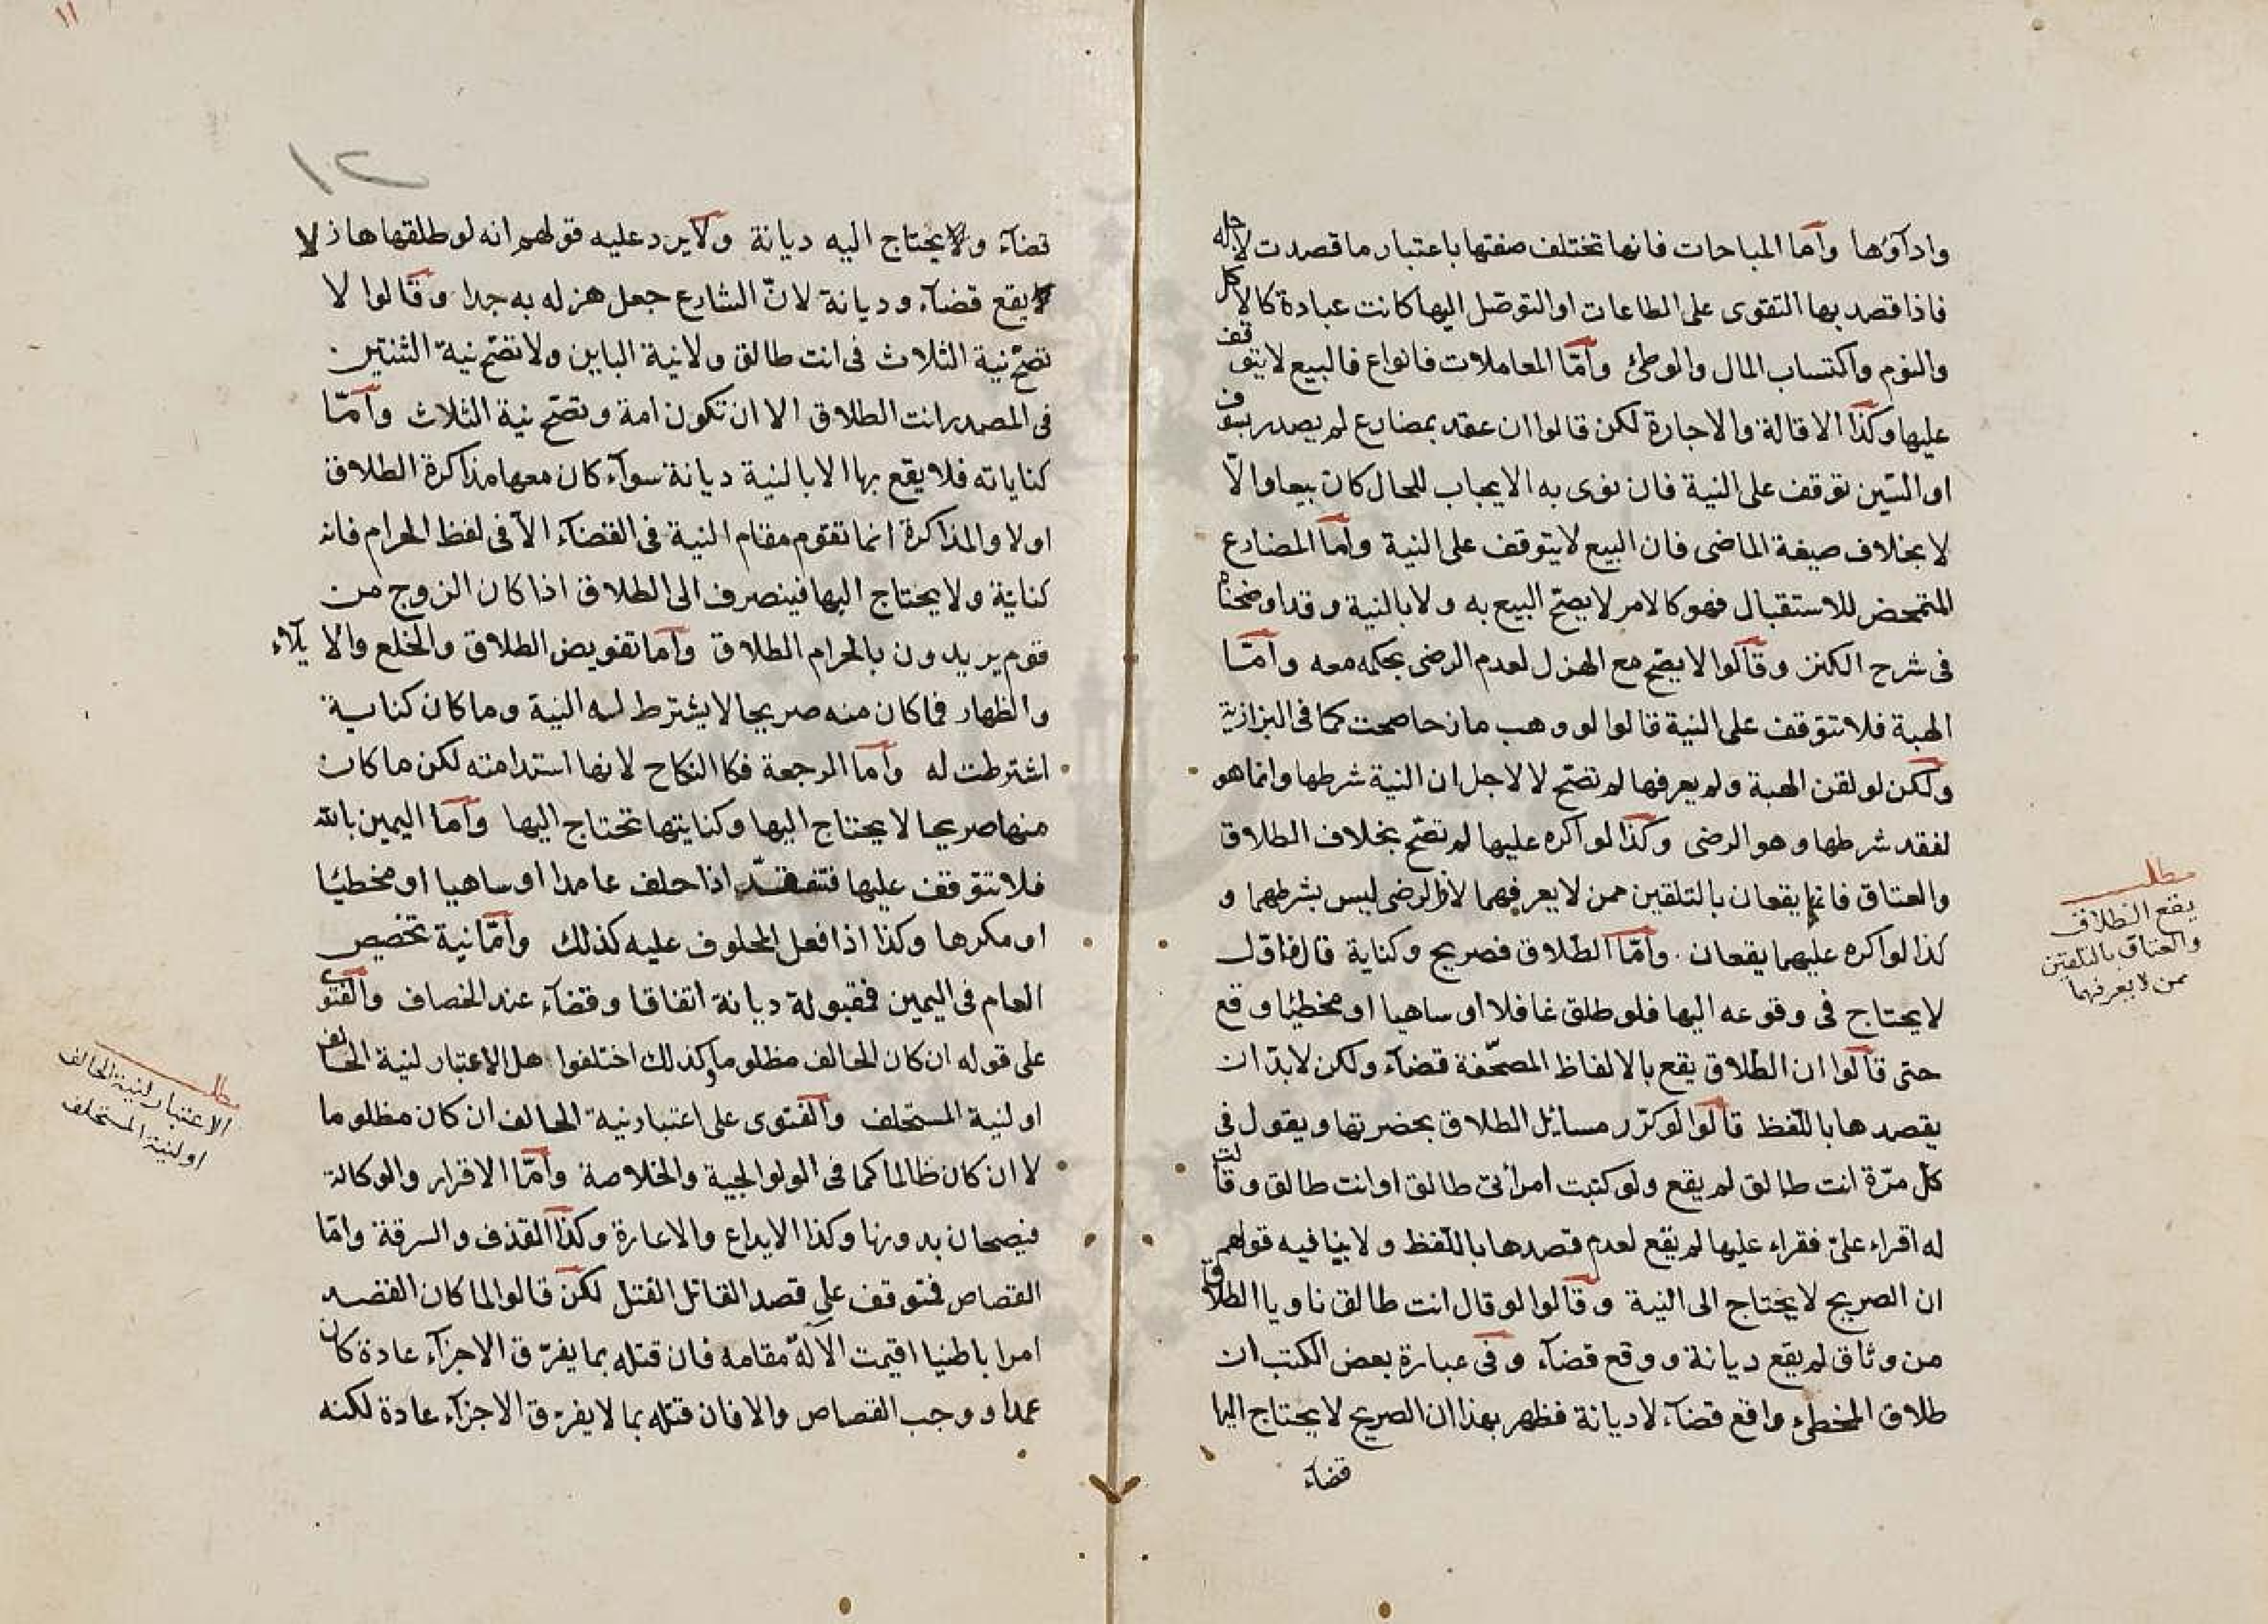 وادآؤها وأما المباحات فانها تختلف صفتها باعتبار ما قصدت لاجله
فاذا قصد بها التقوى على الطاعات او التوصّل اليها كانت عبادة كالاكل
والنوم واكتساب المال والوطئ وأمّا المعاملات فانواع فالبيع لا يتوقف
عليها وكذا الاقالة والاجارة لكن قالوا ان عقد بمضارع لم يصدر بسوف
او السّين توقف على النية فان نوى به الايجاب للحال كان بيعا والّا
لا بخلاف صيغة الماضى فان البيع لا يتوقف على النية وأما المضارع
المتمحض للاستقبال فهو كالامر لا يصحّ البيع به ولا بالنية وقد اوضحناه
فى شرح الكنز وقالوا لا يصحّ مع الهزل لعدم الرضى بحكمه معه وأمّا
الهبة فلا تتوقف على النية قالوا لو وهب مازحا صحت كما فى البزازية
ولكن لو لقن الهبة ولم يعرفها لم تصّح لا لاجل ان النية شرطها وانما هو
لفقد شرطها وهو الرضى وكذا لو اكره عليها لم تصّح بخلاف الطلاق
والعتاق فانهما يقعان بالتلقين ممن لا يعرفهما لان الرضى ليس بشرطهما و
كذا لو اكره عليهما يقعان وأمّا الطّلاق فصريح وكناية فالاول
لا يحتاج فى وقوعه اليها فلو طلق غافلا او ساهيا او مخطئا وقع
حتى قالوا ان الطّلاق يقع بالالفاظ المصحّفة قضآء ولكن لا بدّ ان
يقصدها باللّفظ قالوا لو كرّر مسائل الطلاق بحضرتها ويقول فى
كلّ مرّة انت طالق لم يقع ولو كتبت امرأتى طالق او انت طالق وقالت
له اقراء علىّ فقراء عليها لم يقع لعدم قصدها باللّفظ ولا ينافيه قولهم
ان الصريح لا يحتاج الى النية وقالوا لو قال انت طالق ناويا الطلاق
من وثاق لم يقع ديانة ووقع قضآء وفى عبارة بعض الكتب ان
طلاق المخطئ واقع قضآء لا ديانة فظهر بهذا ان الصريح لا يحتاج اليها
قضآء
مطلب
يقع الطلاق
والعتاق بالتلقين
ممن لا يعرفهما
١١
١٢
قضآء ولا يحتاج اليه ديانة ولا يرد عليه قولهم انه لو طلقها هازلا
يقع قضآء وديانة لانّ الشارع جعل هزله به جدا وقالوا لا
تصّح نية الثلاث فى انت طالق ولا نية الباين ولا تصّح نية الثنتين
فى المصدر انت الطلاق الا ان تكون امة وتصّح نية الثلاث وأمّا
كناياته فلا يقع بها الا بالنية ديانة سوآء كان معها مذاكرة الطلاق
او لا والمذاكرة انما تقوم مقام النية فى القضآء الّا فى لفظ الحرام فانه
كناية ولا يحتاج اليها فينصرف الى الطلاق اذا كان الزوج من
قوم يريدون بالحرام الطلاق وأما تفويض الطلاق والخلع والايلآء
والظهار فما كان منه صريحا لا يشترط له النية وما كان كناية
اشترطت له وأما الرجعة فكالنكاح لانها استدامته لكن ما كان
منها صريحا لا يحتاج اليها وكنايتها تحتاج اليها وأما اليمين بالله
فلا تتوقف عليها فتنعقد اذا حلف عامدا او ساهيا او مخطئا
او مكرها وكذا اذا فعل المحلوف عليه كذلك وأمّا نية تخصيص
العام فى اليمين فمقبولة ديانة اتفاقا وقضآء عند الخصاف والفتوى
على قوله ان كان الحالف مظلوما وكذلك اختلفوا هل الاعتبار لنية الحالف
او لنية المستحلف والفتوى على اعتبار نية الحالف ان كان مظلوما
لا ان كان ظالما كما فى الولوالجية والخلاصة وأمّا الاقرار والوكالة
فيصحان بدونها وكذا الايداع والاعارة وكذا القذف والسرقة وامّا
القصاص فمتوقف على قصد القاتل القتل لكن قالوا لما كان القصد
امرا باطنيا اقيمت الالة مقامه فان قتله بما يفرّق الاجزآء عادة كان
عمدا ووجب القصاص والا فان قتله بما لا يفرّق الاجزآء عادة لكنه
مطلب
الاعتبار لنية الحالف
او لنية المستحلف